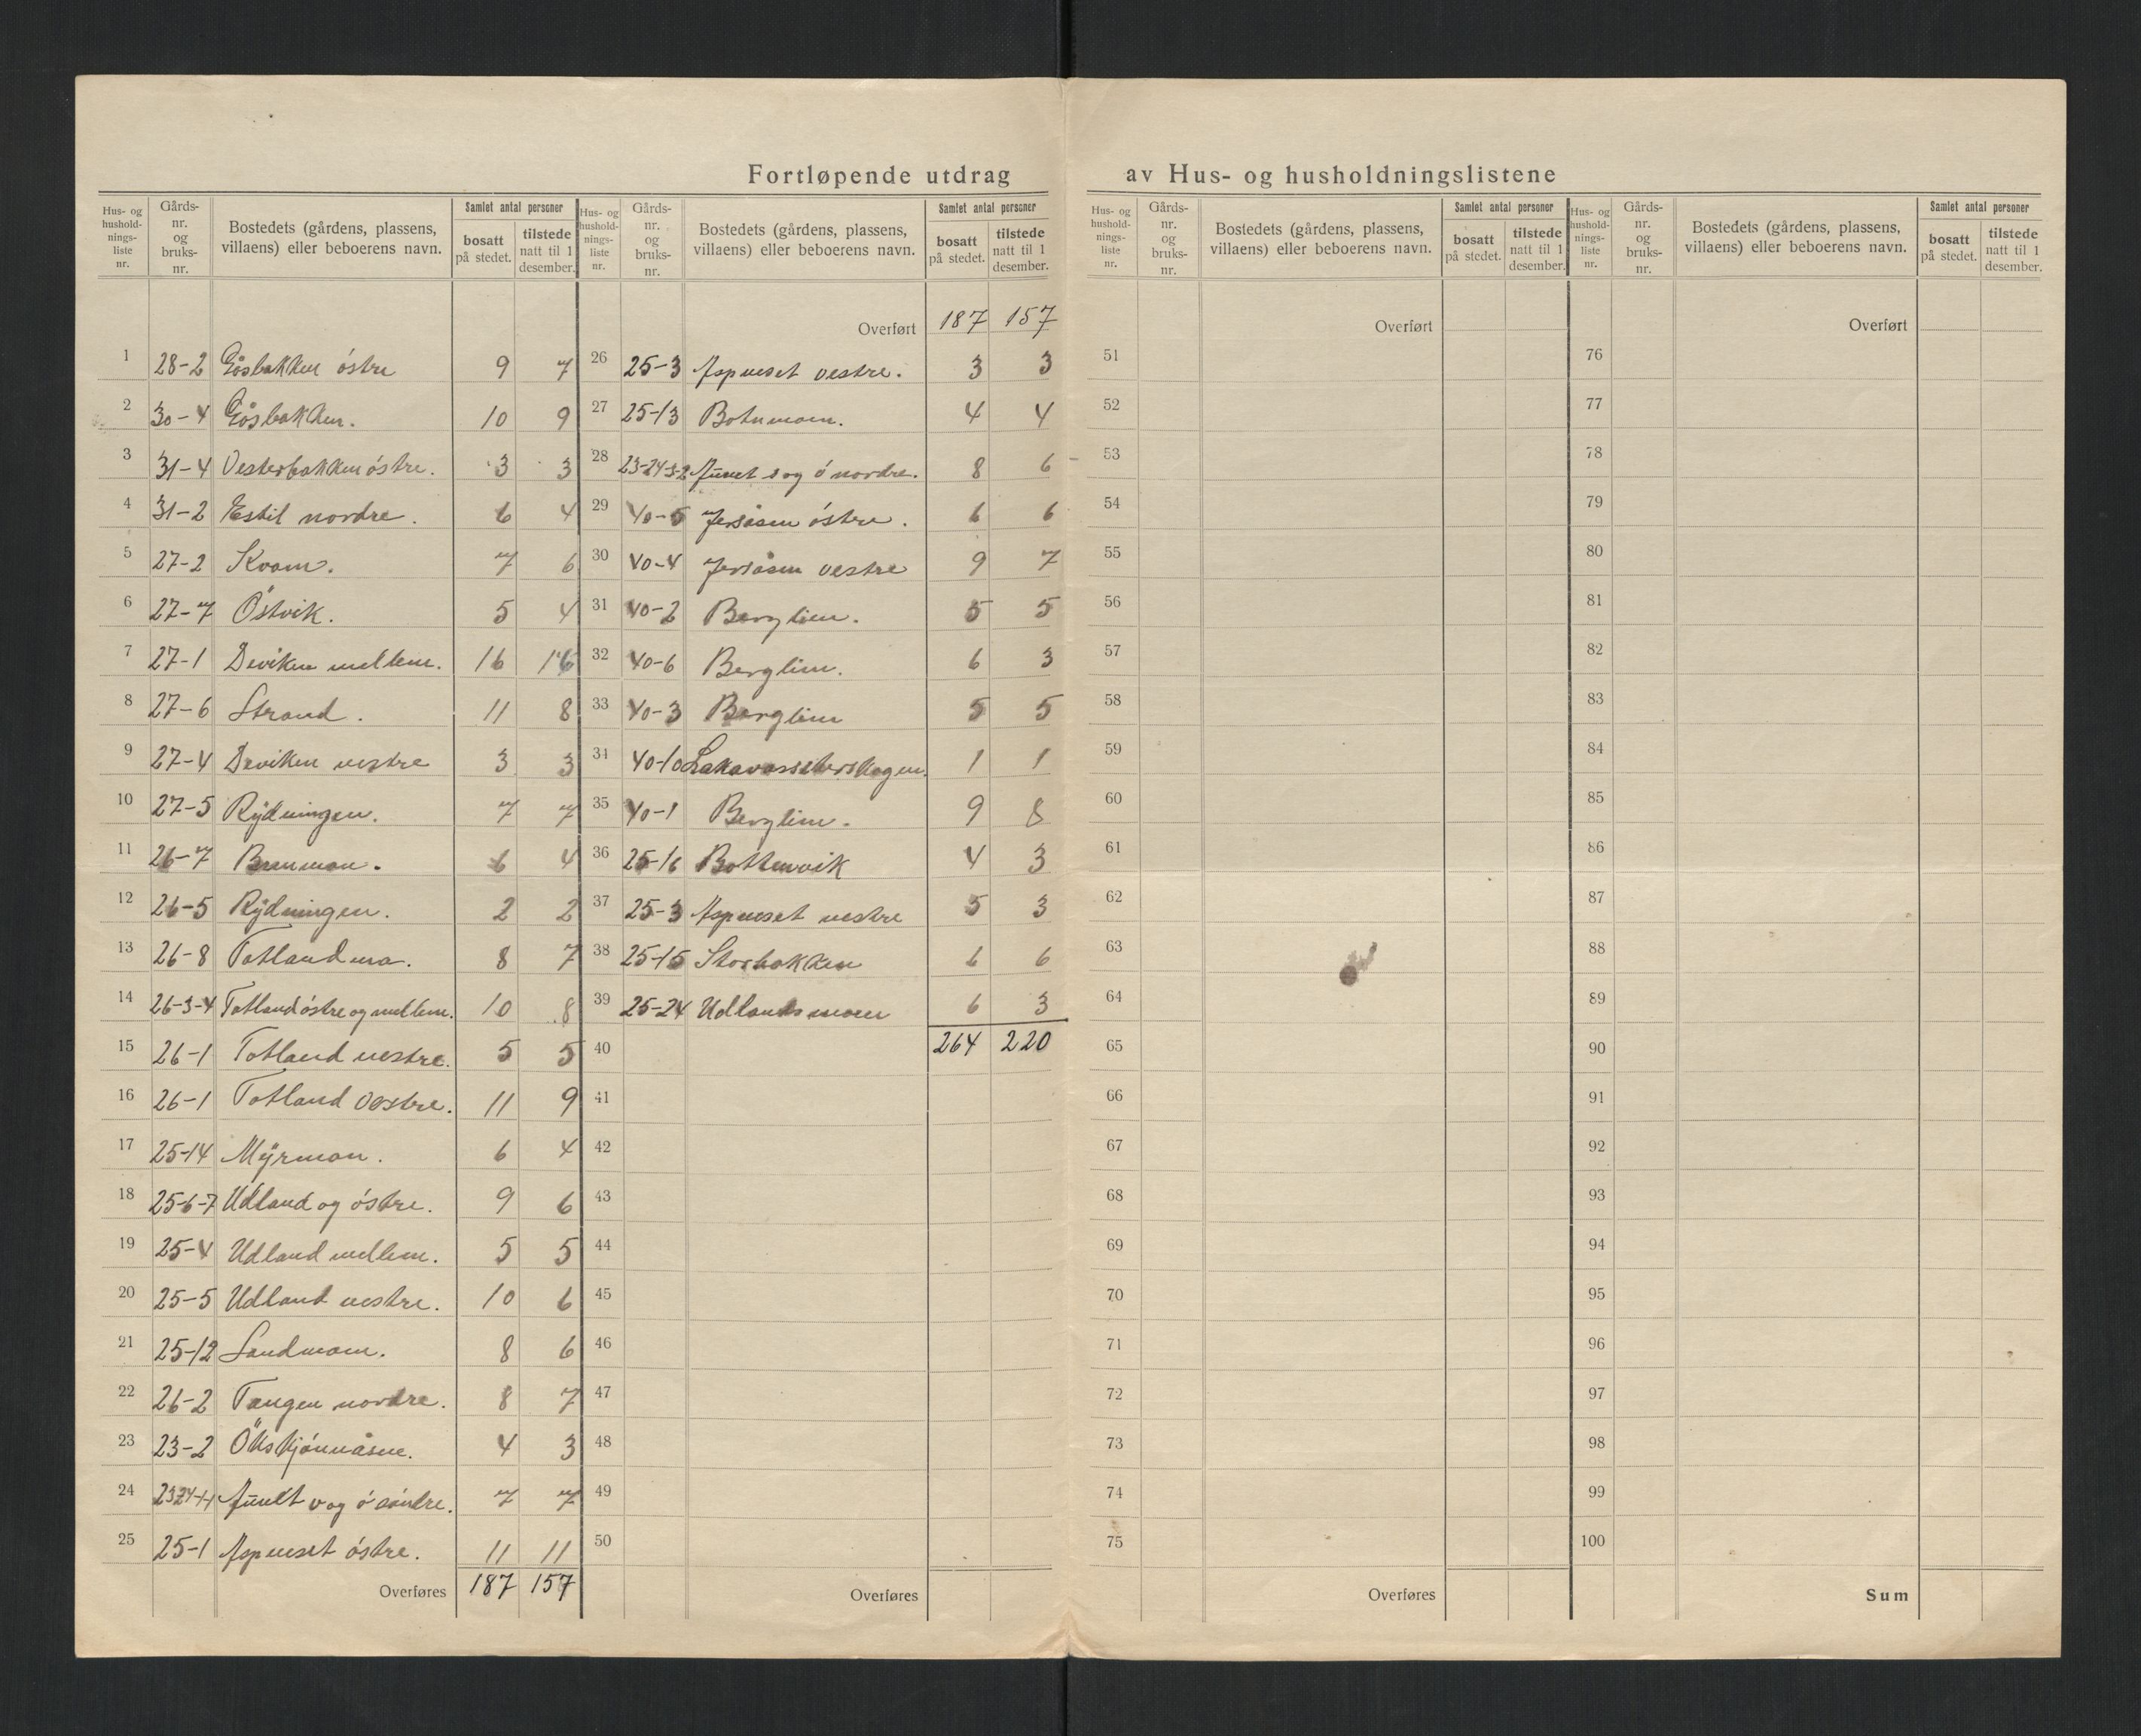 Fortløpende utdrag av Hus- og husholdningslistene
Hus- og hushold-nings-liste nr. Gårds-nr. og bruks-nr. Bostedets (gårdens, plassens, villaens) eller beboerens navn. Samlet antal personer bosatt på stedet. tilstede natt til 1 desember.
1 28-2 Gåsbakken östre 9 7
2 30-4 Gåsbakken. 10 9
3 31-4 Vesterbakken östre. 3 3
4 31-2 Estil nordre. 6 4
5 27-2 Kvam. 7 6
6 27-7 Östvik. 5 4
7 27-1 Deviken mellem. 16 16
8 27-6 Strand. 11 8
9 27-4 Deviken vestre 3 3
10 27-5 Rydningen. 7 7
11 26-7 6 4
12 26-5 Rydningen. 2 2
13 26-8 Totlandmo. 8 7
14 26-3-4 Totland östre og mellem. 10 8
15 26-1 Totland vestre. 5 5
16 26-1 Totland vestre. 11 9
17 25-14 Myrmoen. 6 4
18 25-6-7 Udland og östre. 9 6
19 25-4 Udland mellem. 5 5
20 25-5 Udland vestre. 10 6
21 25-12 Sandmoen. 8 6
22 26-2 Tangen nordre. 8 7
23 23-2 4 3
24 v og ö söndre. 7 7
25 25-1 Aspneset östre. 11 11
Overføres 187 157
Hus- og hushold-nings-liste nr. Gårds-nr. og bruks-nr. Bostedets (gårdens, plassens, villaens) eller beboerens navn. Samlet antal personer bosatt på stedet. tilstede natt til 1 desember.
Overført 187 157
26 25-3 Aspneset vestre. 3 3
27 25-13 Botnmoen. 4 4
28 og ö nordre. 8 6
29 40-5 Jersåsen östre. 6 6
30 40-4 Jersåsen vestre 9 7
31 40-2 Berglien. 5 5
32 40-6 Berglim. 6 3
33 40-3 Berglim 5 5
34 40-10 Lakavasseterskogen. 1 1
35 40-1 Berglim. 9 8
36 25-16 Bottenvik 4 3
37 25-3 Aspneset vestre 5 3
38 25-15 Storbakken 6 6
39 25-24 Udlandsmoen 6 3
40 264 220
41
42
43
44
45
46
47
48
49
50
Overføres
Hus- og hushold-nings-liste nr. Gårds-nr. og bruks-nr. Bostedets (gårdens, plassens, villaens) eller beboerens navn. Samlet antal personer bosatt på stedet. tilstede natt til 1 desember.
Overført
51
52
53
54
55
56
57
58
59
60
61
62
63
64
65
66
67
68
69
70
71
72
73
74
75
Overføres
Hus- og hushold-nings-liste nr. Gårds-nr. og bruks-nr. Bostedets (gårdens, plassens, villaens) eller beboerens navn. Samlet antal personer bosatt på stedet. tilstede natt til 1 desember.
Overført
76
77
78
79
80
81
82
83
84
85
86
87
88
89
90
91
92
93
94
95
96
97
98
99
100
Sum